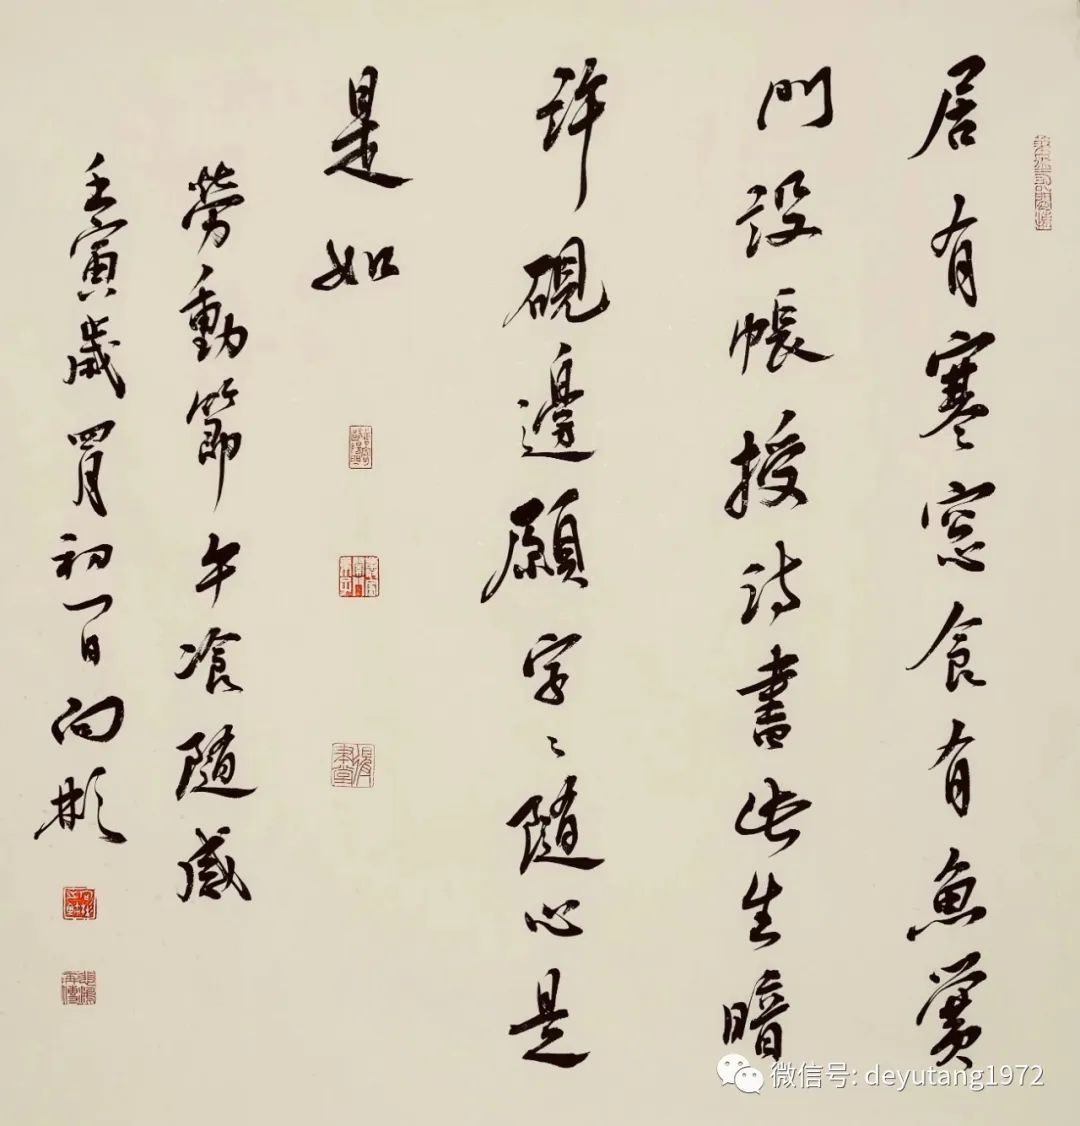 居有寒窓食有魚黌
門設帳授詩書此生暗
許硯邊願字々隨心是
是如
勞動節午飡隨感
壬寅歲四月初一日向彬
微信号: deyutang1972